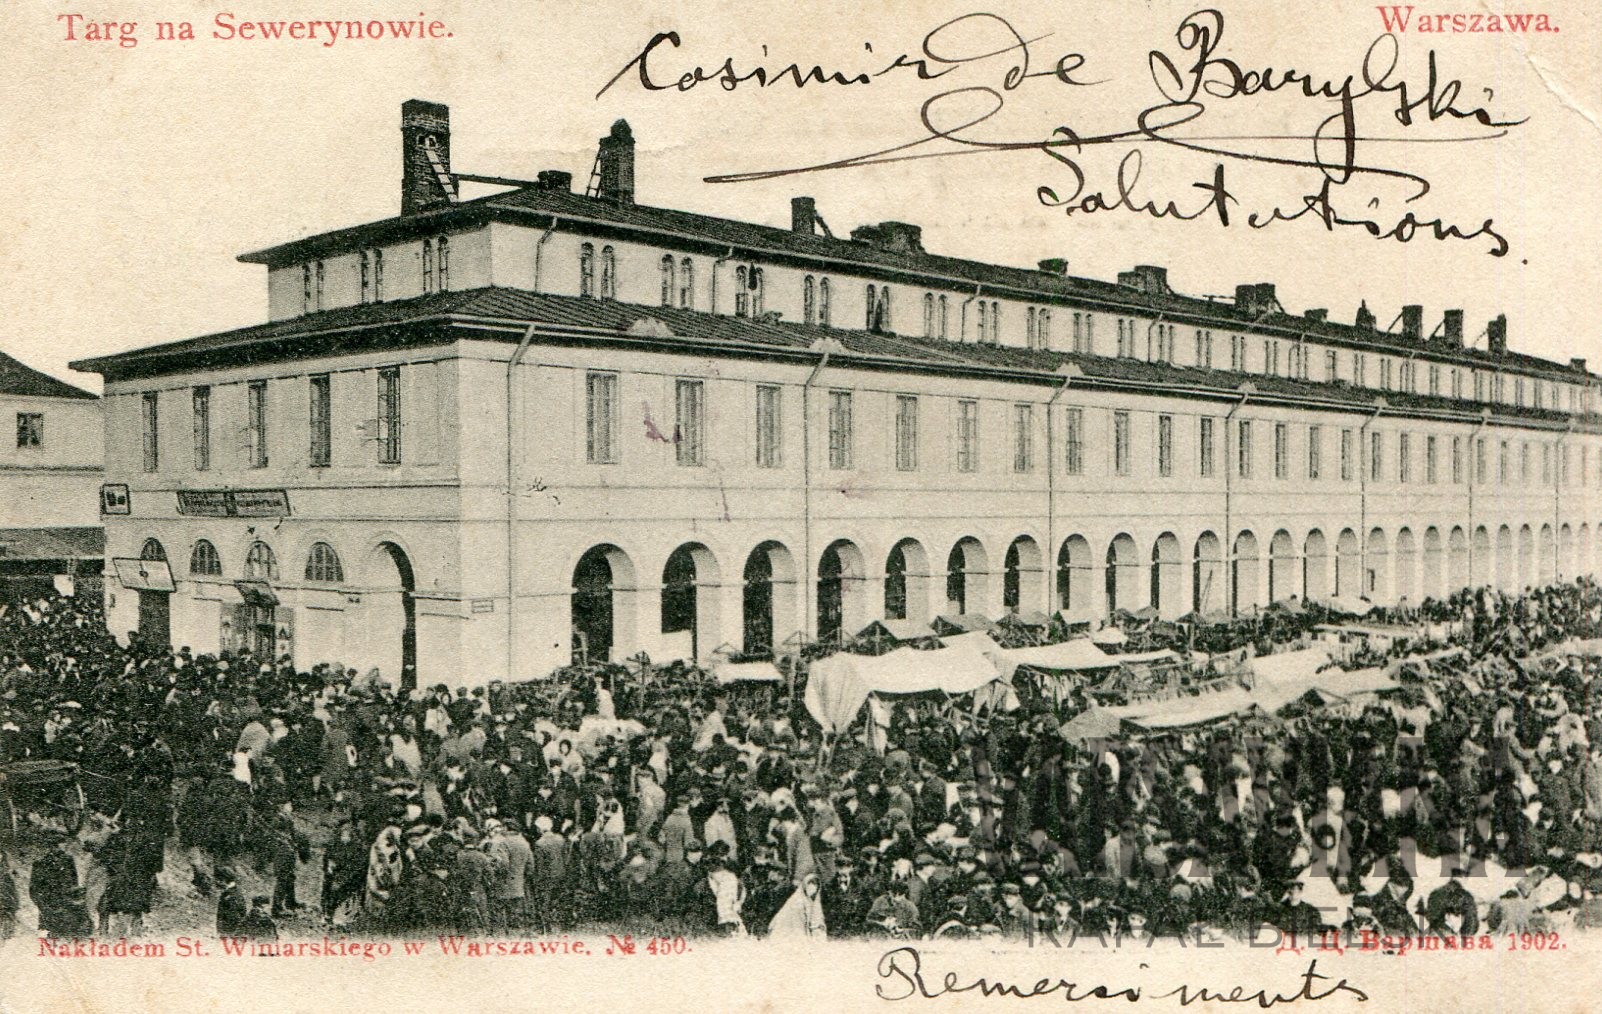 Targ na Sewerynowie.
Warszawa.
Casimir de Barylski
Salutations.
Nakładem St. Winiarskiego w Warszawie. № 450.
Д. Ц. Варшава 1902.
RAFAŁ BIELSKI
Remersiments